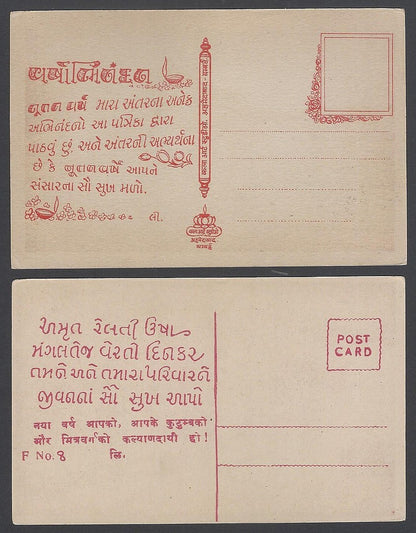 વર્ષાભિનંદન
નૂતન વર્ષે મારા અંતરના અનેક
અભિનંદનો આ પત્રિકા દ્વારા
પાઠવું છું અને અંતરની અભ્યર્થના
છે કે નૂતનવર્ષે આપને
સંસારના સૌ સુખ મળો.
લી.
અમદાવાદ
મુંબઈ
અમૃત રેલતી ઉષા
મંગલતેજ વેરતો દિનકર
તમને અને તમારા પરિવારને
જીવનનાં સૌ સુખ આપો
नया वर्ष आपको, आपके कुटुम्बको
और मित्रवर्गको कल्याणदायी हो!
F No. 8 લિ.
POST
CARD